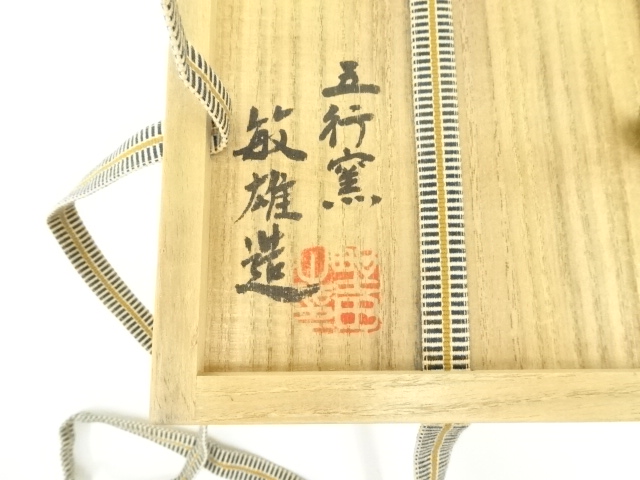 五行窯
敏雄造